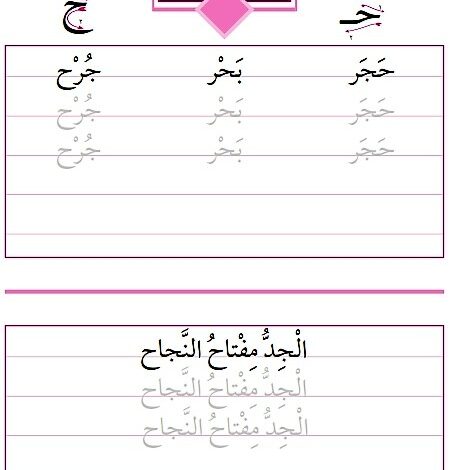 حـ ح
حَجَر بَحْر جُرْح
حَجَر بَحْر جُرْح
حَجَر بَحْر جُرْح
الْجِدُّ مِفْتاحُ النَّجاح
الْجِدُّ مِفْتاحُ النَّجاح
الْجِدُّ مِفْتاحُ النَّجاح